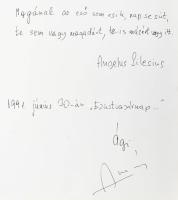 Magának az eső sem esik, nap se süt,
te sem vagy magadért, te is másért vagy itt.
Angelus Silesius
1991. június 30-án, „Ezüstvasárnap..."
Ági,